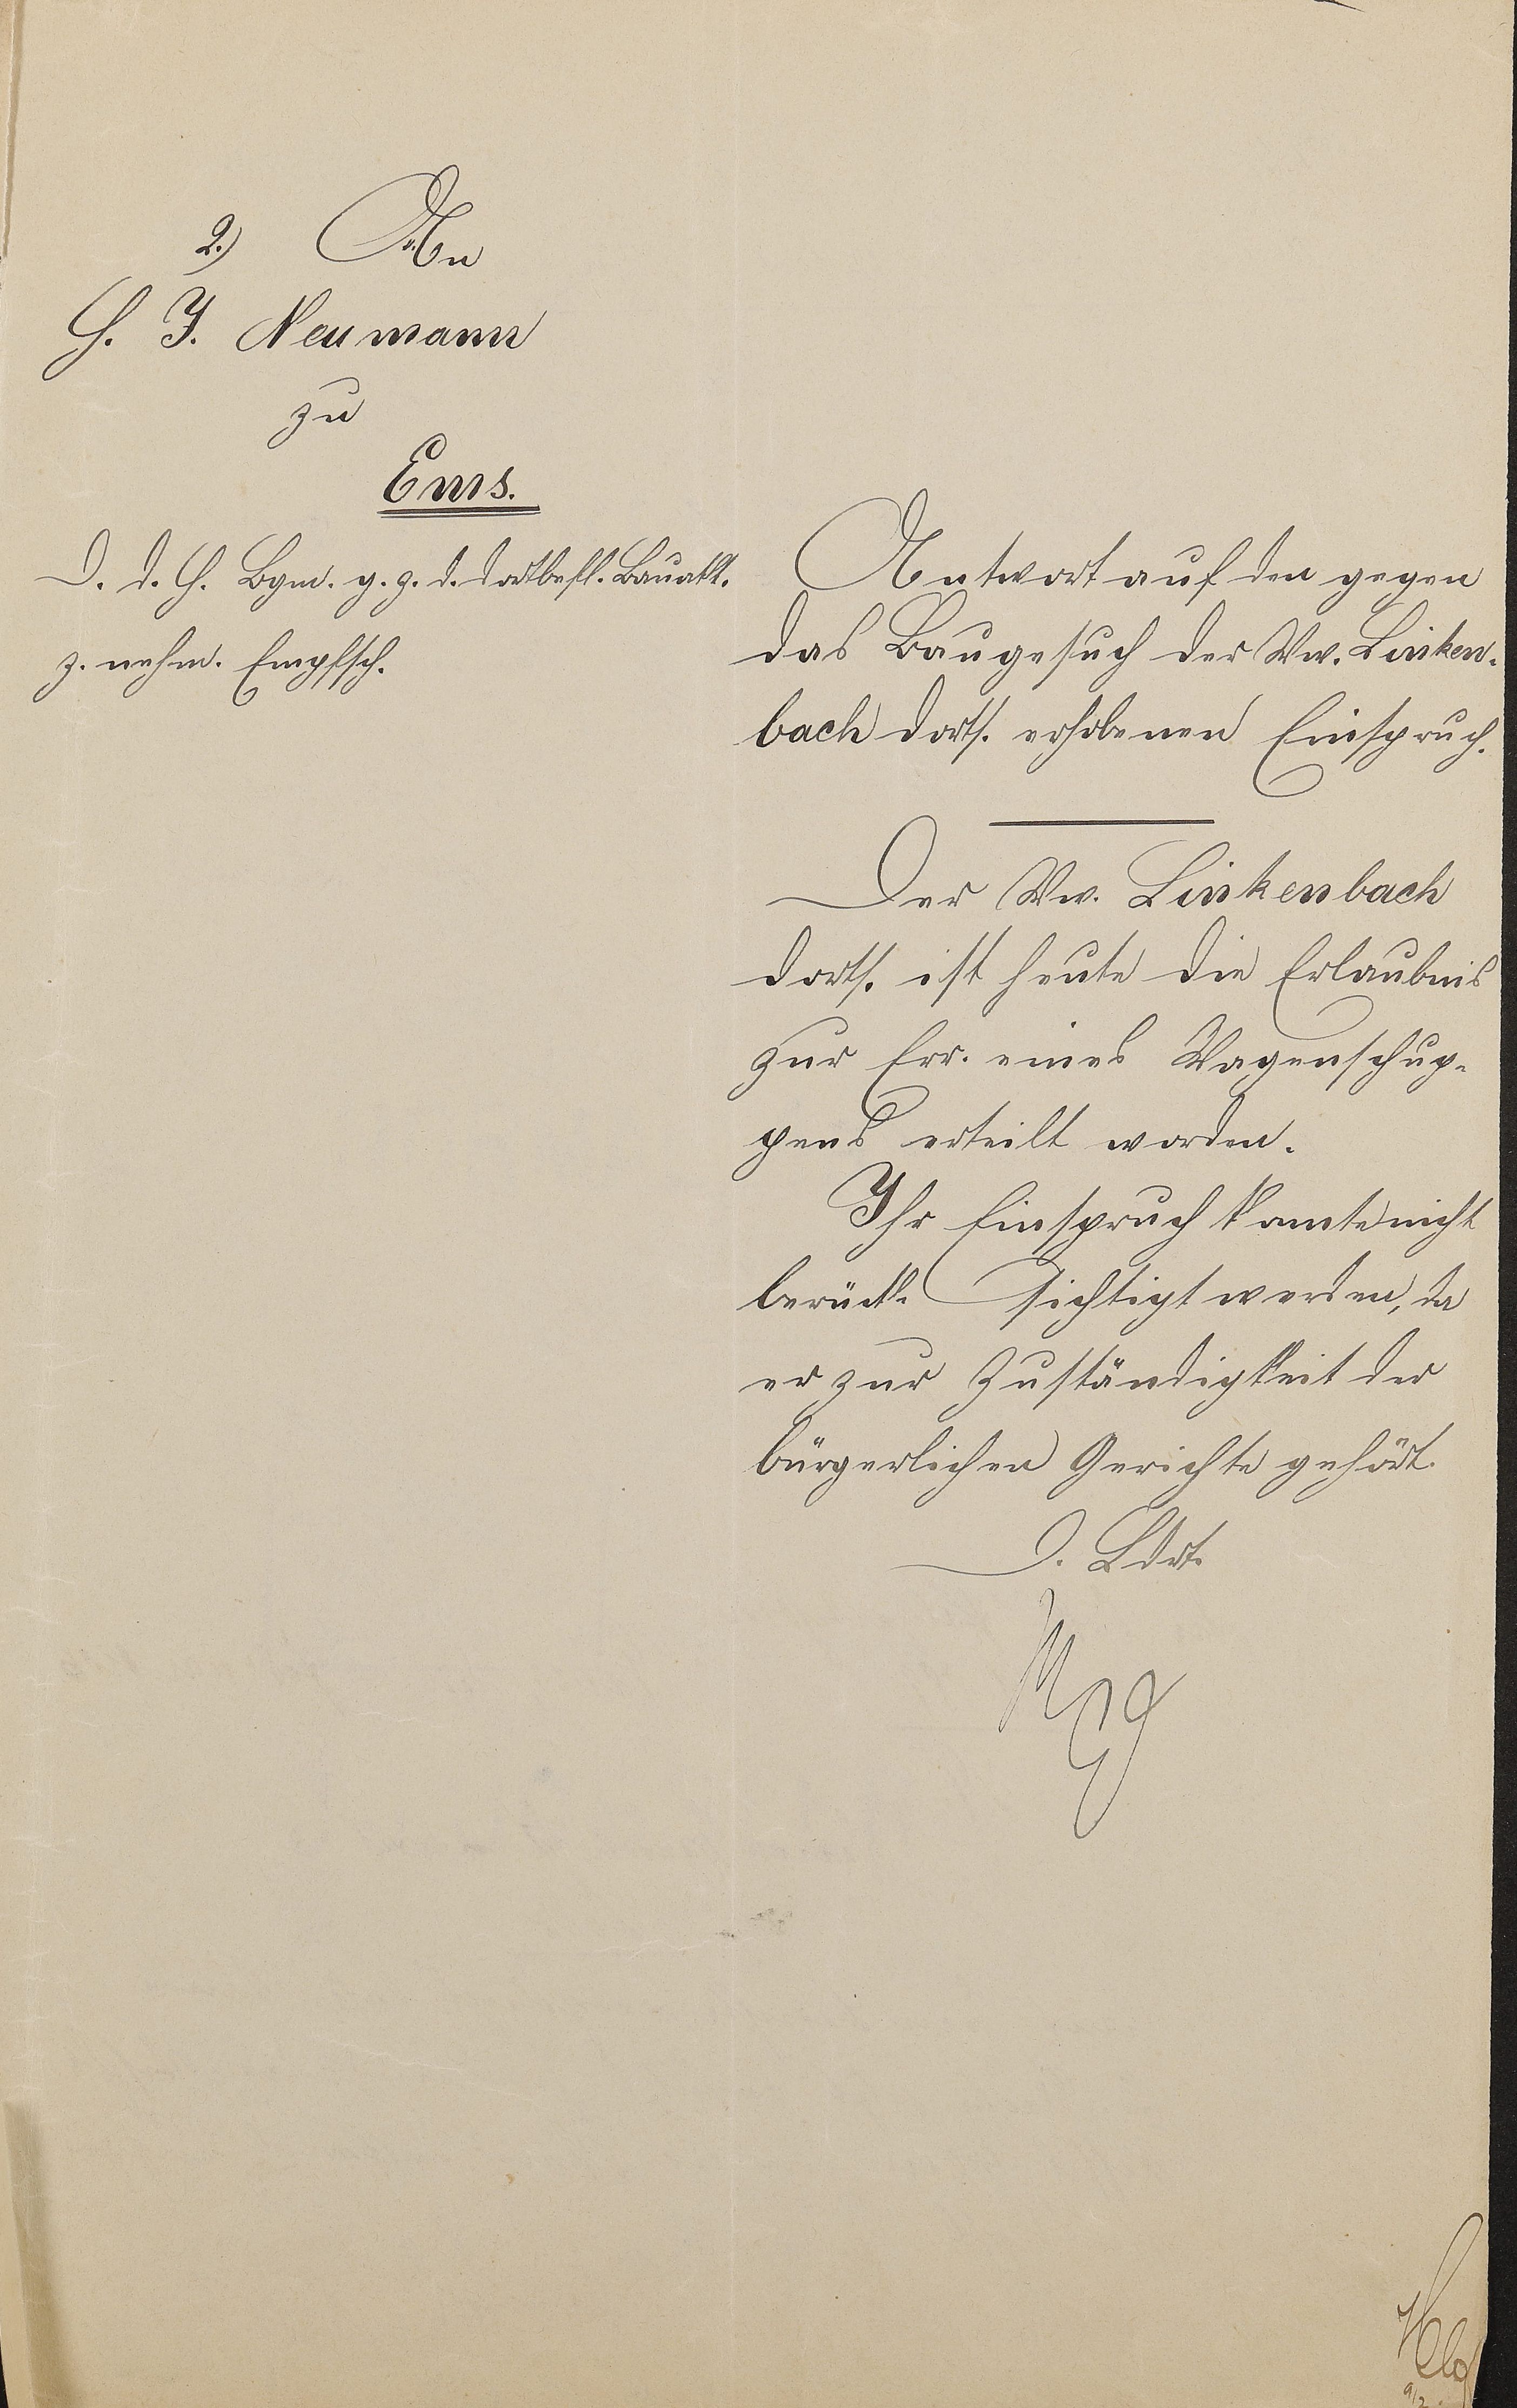 2.) An
H. J. Neumann
zu
Ems.
D. d. H. Bgm. g. z. d. dortbefl. Bauakt.
z. nehm. Empfsch.
Antwort auf den gegen
das Baugesuch der Ww. Linken-
bach dorts. erhobenen Einspruch.
Der Ww. Linkenbach
dorts. ist heute die Erlaubnis
zur Err. eines Wagenschup-
pens erteilt worden.
Ihr Einspruch konnte nicht
berück- sichtigt werden, da
er zur Zuständigkeit der
bürgerlichen Gerichte gehört.
D. Ldrt.